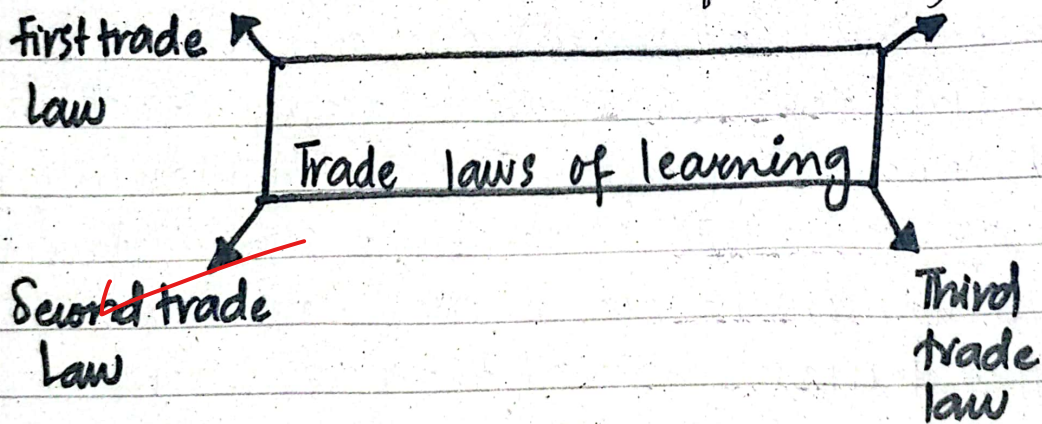 First trade
Law
Trade laws of learning
Second trade
Law
Third
trade
law